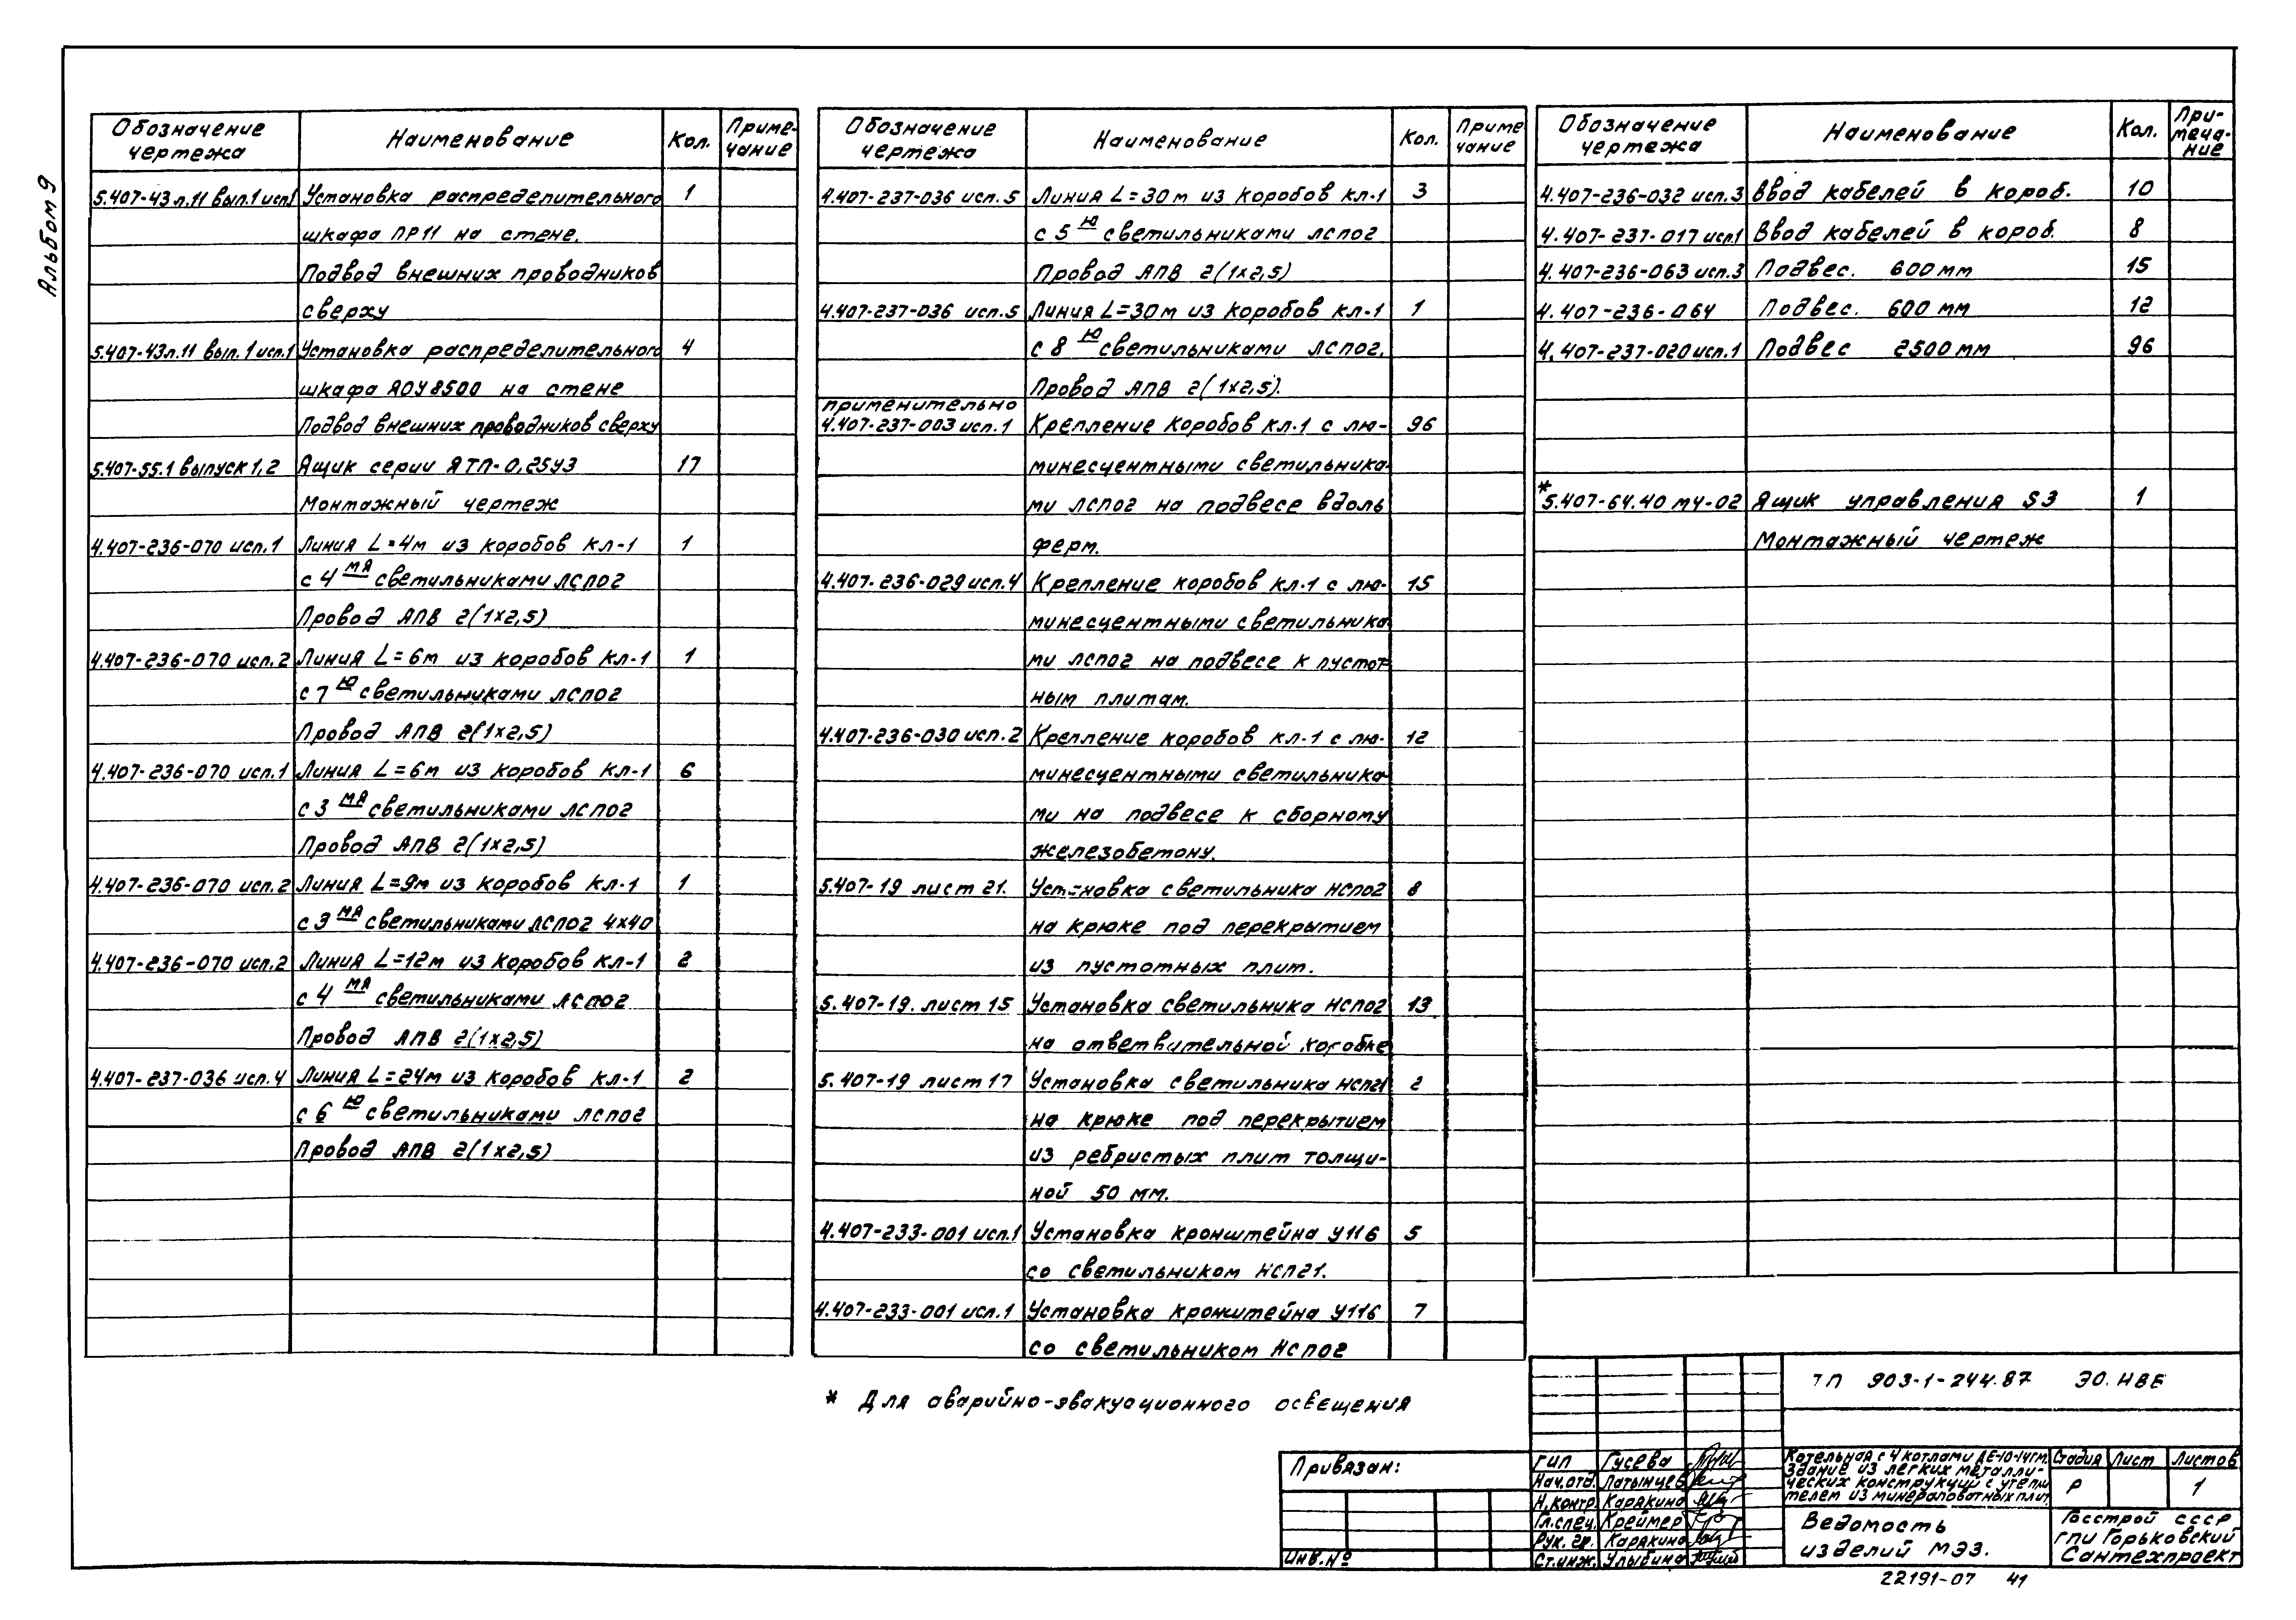 Альбом 9
Обозначение чертежа Наименование Кол. Примечание
5.407-43 л.11 вып.1 исп.1 Установка распределительного 1
шкафа ПР11 на стене.
Подвод внешних проводников
сверху
5.407-43 л.11 вып.1 исп.1 Установка распределительного 4
шкафа ЯОУ8500 на стене
Подвод внешних проводников сверху
5.407-55.1 выпуск 1,2 Ящик серии ЯТП-0,25У3 17
Монтажный чертеж
4.407-236-070 исп.1 Линия L=4м из коробов КЛ-1 1
с 4 мя светильниками ЛСП02
Провод АПВ 2(1х2,5)
4.407-236-070 исп.2 Линия L=6м из коробов КЛ-1 1
с 7 ю светильниками ЛСП02
Провод АПВ 2(1х2,5)
4.407-236-070 исп.1 Линия L=6м из коробов КЛ-1 6
с 3 мя светильниками ЛСП02
Провод АПВ 2(1х2,5)
4.407-236-070 исп.2 Линия L=9м из коробов КЛ-1 1
с 3 мя светильниками ЛСП02 4х40
4.407-236-070 исп.2 Линия L=12м из коробов КЛ-1 2
с 4 мя светильниками ЛСП02
Провод АПВ 2(1х2,5)
4.407-237-036 исп.4 Линия L=24м из коробов КЛ-1 2
с 6 ю светильниками ЛСП02
Провод АПВ 2(1х2,5)
Обозначение чертежа Наименование Кол. Приме чание
4.407-237-036 исп.5 Линия L=30м из коробов КЛ-1 3
с 5 ю светильниками ЛСП02
Провод АПВ 2(1х2,5)
4.407-237-036 исп.5 Линия L=30м из коробов КЛ-1 1
с 8 ю светильниками ЛСП02.
Провод АПВ 2(1х2,5).
применительно
4.407-237-003 исп.1 Крепление коробов КЛ-1 с лю- 96
минесцентными светильника-
ми ЛСП02 на подвесе вдоль
ферм.
4.407-236-029 исп.4 Крепление коробов КЛ-1 с лю- 15
минесцентными светильника
ми ЛСП02 на подвесе к пустот-
ным плитам.
4.407-236-030 исп.2 Крепление коробов КЛ-1 с лю- 12
минесцентными светильника-
ми на подвесе к сборному
железобетону.
5.407-19 лист 21. Установка светильника НСП02 8
на крюке под перекрытием
из пустотных плит.
5.407-19. лист 15 Установка светильника НСП02 13
на ответвительной коробке
5.407-19 лист 17 Установка светильника НСП21 2
на крюке под перекрытием
из ребристых плит толщи-
ной 50 мм.
4.407-233-001 исп.1 Установка кронштейна У116 5
со светильником НСП21.
4.407-233-001 исп.1 Установка кронштейна У116 7
со светильником НСП02
Обозначение чертежа Наименование Кол. При-меча-ние
4.407-236-032 исп.3 Ввод кабелей в короб. 10
4.407-237-017 исп.1 Ввод кабелей в короб. 8
4.407-236-063 исп.3 Подвес. 600 мм 15
4.407-236-064 Подвес. 600 мм 12
4.407-237-020 исп.1 Подвес 2500 мм 96
* 5.407-64.40 МЧ-02 Ящик управления S3 1
Монтажный чертеж
* Для аварийно-эвакуационного освещения
Привязан:
Инв.№
ТП 903-1-244.87 ЭО.НВЕ
ГИП Гусева
Нач.отд. Латынцев
Н.контр. Карякина
Гл.спец. Креймер
Рук. гр. Карякина
Ст.инж. Улыбина
Котельная с 4 котлами ДЕ-10-14ГМ.
Здание из легких металли-
ческих конструкций с утепли
телем из минераловатных плит
Стадия Лист Листов
Р 1
Ведомость
изделий МЭЗ.
Госстрой СССР
ГПИ Горьковский
Сантехпроект
22191-07 41